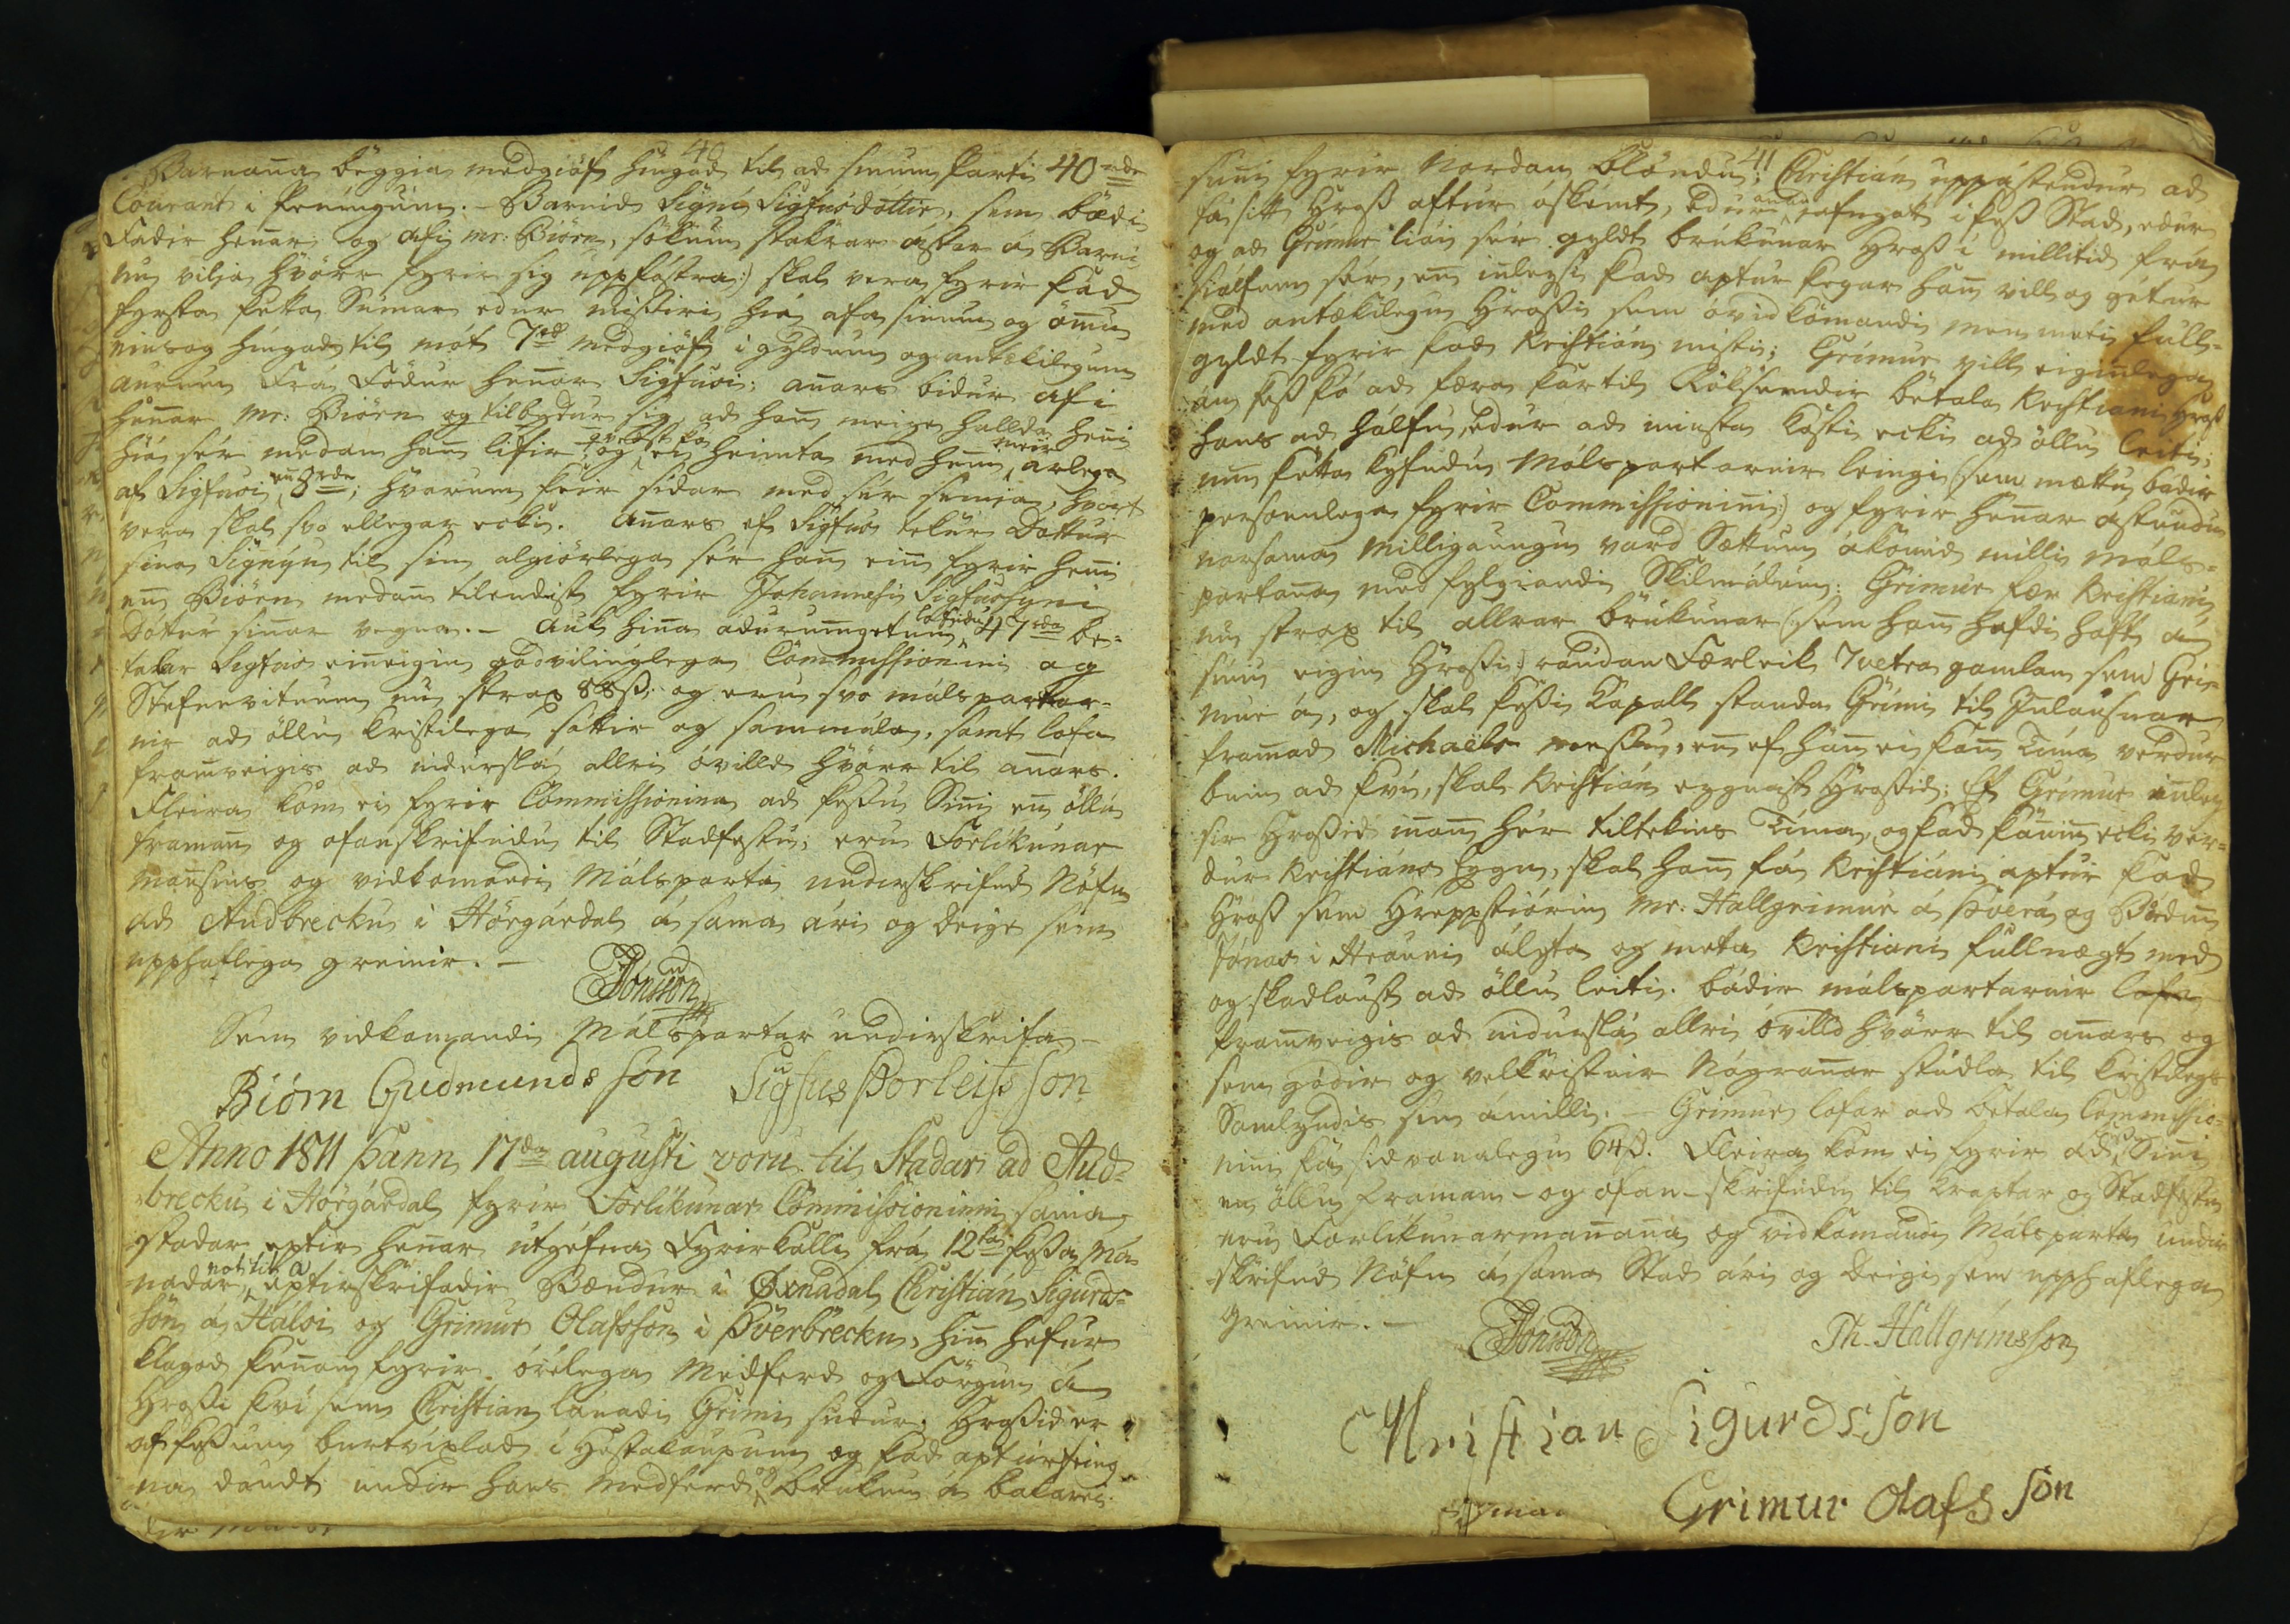 40
Barnana beggia medgiöf hingad til ad sinum Parti 40 rde
Courant i Peníngum. – Barnid Signí Sigfusdottir, sem bædi
Fadir hennar og Afi mr: Biörn, sökum stakrar ástar á Barni
nu vilja hvörr fyrir sig uppfóstra:) skal vera fyrir það
fyrsta þetta Sumar edur missiri hiá afa sinum og ömu
eins og hingad til mót 7rd medgiöf i gyldum og antækilegum
aurum Frá Födur hennar Sigfusi; annars bidur afi
hennar Mr. Biörn og tilbydur sig, ad hann meige hallda henni
hiá sér medan hann lifir og ei heimta med henni meir árlega
af Sigfusi en 8 rde; hvörum þeir sídar med sér semia, hvört
vera skal svo ellegar ecki. Annars ef Sigfus tekur Dottur
sina Signýu til sin algiörlega sér hann einn fyrir henni
enn Biörn medan tilendist fyrir Johannesi Sigfussyni
Dottur sinar vegna. – Auk hina adurumgetnu lofudu 47 rda be-
talar Sigfus einneigin godvilinglega Commissioninni og
Stefnuvitnum nu strax 88 ß. og eru svo málspartar-
nir ad öllu kristilega sáttir og sammála, samt lofa
framveigis ad nidurslá allri óvilld hvörr til annars.
Fleira kom ei fyrir Commissionina ad þessu Sinni enn öllu
framan og ofanskrifudu til Stadfestu; eru Forlíkunar
mansins og vidkomandi Málsparta underskrifud Nöfn
ad Audbrecku i Hörgárdal á sama ári og deige sem
upphaflega greinir. –
Jonsson
Sem vidkomandi Málspartar undirskrifa –
Biörn Gudmunds son Sigfus Þorleifs son
Anno 1811 Þann 17da augusti voru til Stadar ad Aud-
brecku i Hörgárdal fyrir Forlíkunar Commissioninni sama-
stadar eptir hennar útgéfna Fyrirkalli frá 12ta þessa Má-
nadar notitia eptirskrifadir Bændur i Øxnadal Christián Sigurds-
son á Hálsi og Grimur Olafsson i Þverbrecku, hinn hefur
klagad þennan fyrir ótilega Medferd og Förgun á
Hrossi því sem Christian lánadi Grimi sudur; Hrossid er
af þessum burtvixlad i Hestakaupum og það apturfeing-
na daudt undir hans Medferd og Brukun á bakarei-
41
sunni fyrir Nordan Blöndu; Christián uppástendur ad
fá sitt Hross aftur óskémt, edur annad jafngott i þess Stad, edur
og ad Grimur liái sér gyldt brúkunar Hross i millitid frá
siálfum sér, enn inleysi það aptur þegar hann vill og gétur
med antækilegu Hrossi sem óvidkomandi menn meti full-
gyldt fyrir það Kristián misti; Grimur vill eiginlega
án þess þó ad færa þar til Röksemdir betala Kristiani Hross
hans ad hálfu, edur ad minsta kosti ecki ad öllu leiti;
um þetta þrefudu Málspartarnir leingi (sem mættu bádir
persoonlega fyrir Commissioninni:) og fyrir hennar astundu-
narsama Milligaungu vard Sættum ákomid milli Máls-
partana med fylgiandi Skilmálum: Grimur fær Kristiani
nu strax til allrar brúkunar (:sem hann hafdi haft á
sinu eigin Hrossi:) raudan Færleik 7 vetra gamlan sem Gri-
mur á, og skal þessi Kapall standa Grimi til Inlausnar
framad Michaels messu, enn ef hann ei þann Tima verdur
buin ad því, skal Kristián eygnast Hrossid; Ef Grimur inley-
sir Hrossid innan hér tiltekins Tima, og það þannin ecki ver-
dur Kristiáns Eygn, skal hann fá Kristiáni aptur það
Hross sem Hreppstiórin Mr. Hallgrimur á Þverá og Bóndin
Jónas i Hrauni álýta og meta Kristiani fullnægt med
og skadlaust ad öllu leiti. bádir málspartarnir lofa
framveigis ad nidurslá allri óvilld hvörr til annars og
sem gódir og velkristnir Nágrannar studla til kristilegs
Samlyndis sin ámilli. – Grimur lofar ad betala Commissio-
ninni þá sidvanalegu 64 ß. Fleira kom ei fyrir ad þessu Sinni
en öllu framan- og ofan-skrifudu til kraptar og Stadfestu
eru Forlikunarmanana og vidkomandi Málsparta undir-
skrifud Nöfn á sama Stad ári og deigi sem upphaflega
greinir. –
Jonsson Th. Hallgrimsson
Christian Sigurds son
Grimur Olafs son